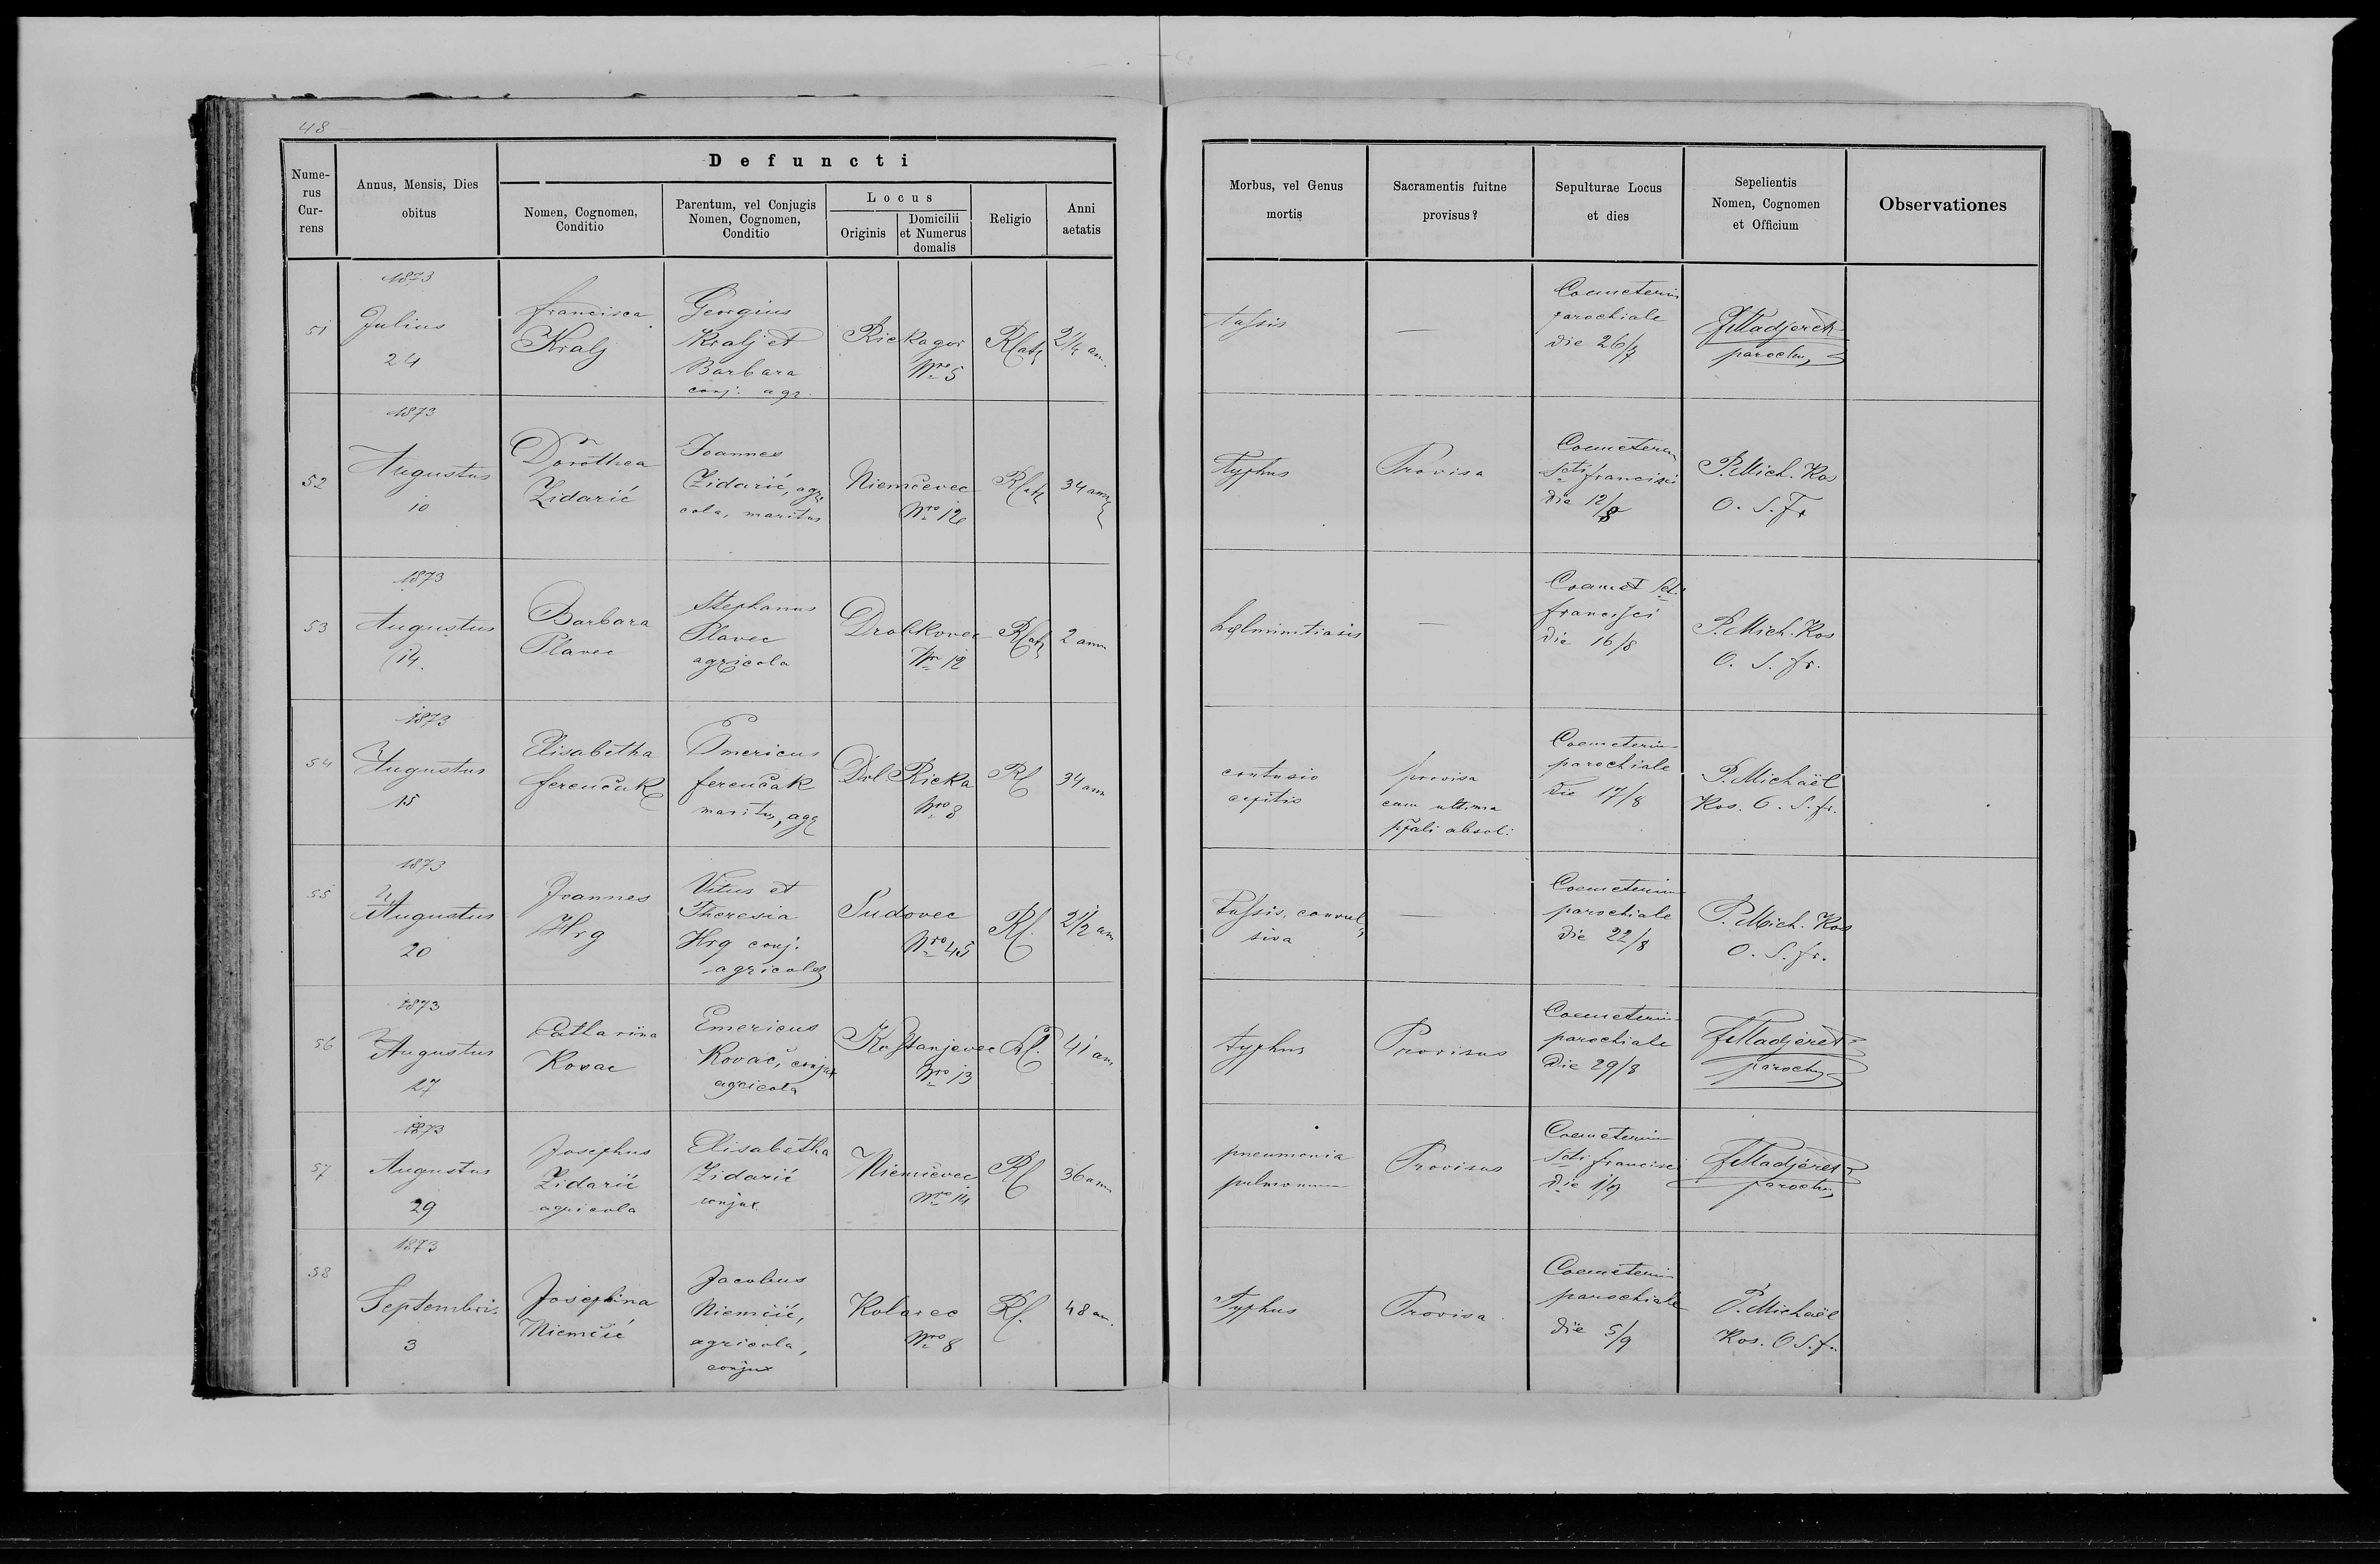 48
Defuncti
Nume-
rus
Cur-
rens
Annus, Mensis, Dies
obitus
Nomen, Cognomen,
Conditio
Parentum, vel Conjugis
Nomen, Cognomen,
Conditio
Locus
Originis
Domicilii
et Numerus
domalis
Religio
Anni
aetatis
Morbus, vel Genus
mortis
Sacramentis fuitne
provisus?
Sepulturae Locus
et dies
Sepelientis
Nomen, Cognomen
et Officium
Observationes
51
1873
Julius
24
Francisca
Kralj
Georgius
Kralj et
Barbara
conj. agr.
Riekagor
Nro 5
2 1/4 an.
tussis
—
Coemeterium
parochiale
die 26/7
parochus
52
1873
Augustus
10
Dorothea
Zidarić
Joannes
Zidarić, agri
cola, maritus
Niemčevec
Nro 12
34 ann
Typhus
Provisa
Scti francisci
die 12/8
P. Mich. Kos
O. S. Fr
53
1873
Augustus
14.
Barbara
Plavec
Stephanus
Plavec
agricola
Drobkovec
Nro 12
2 ann
helmintiasis
—
Coemet Sct.
francisci
die 16/8
P. Mich. Kos
O. S. fr.
54
1873
Augustus
15
Elisabetha
ferenčak
Emericus
ferenčak
maritus, agr
Dol. Rieka
Nro 8
Rl
34 ann
contusio
capitis
provisa
cum ultima
absol:
Coemeterium
parochiale
Die 17/8
P. Michaël
Kos. O. S. fr.
55
1873
Augustus
20
Joannes
Hrg
Vitus et
Theresia
Hrg conj.
agricolae
Sudovec
Nro 45
Rl.
2 1/2 an
Tussis. convul
siva
—
Coemeterium
parochiale
die 22/8
P. Mich. Kos
O. S. fr.
56
1873
Augustus
27
Catharina
Kovac
Emericus
Kovač, conjux
agricola
Kostanjevec
Nro 13
Rl.
41 an
typhus
Provisus
Coemeterium
parochiale
Die 29/8
parochus
57
1873
Augustus
29
Josephus
Zidarić
agricola
Elisabetha
Zidarić
conjux
Niemčevec
Nro 14
Rl
36 ann
pneumonia
pulmonum
Provisus
Coemeterium
Scti francisci
die 1/9
parochus
58
1873
Septembris
3
Josephina
Niemčić
Jacobus
Niemčić,
agricola,
conjux
Kolarec
Nro 8
Rl.
48 an.
Typhus
Provisa
Coemeterium
parochiale
die 5/9
P. Michaël
Kos. O S. f.